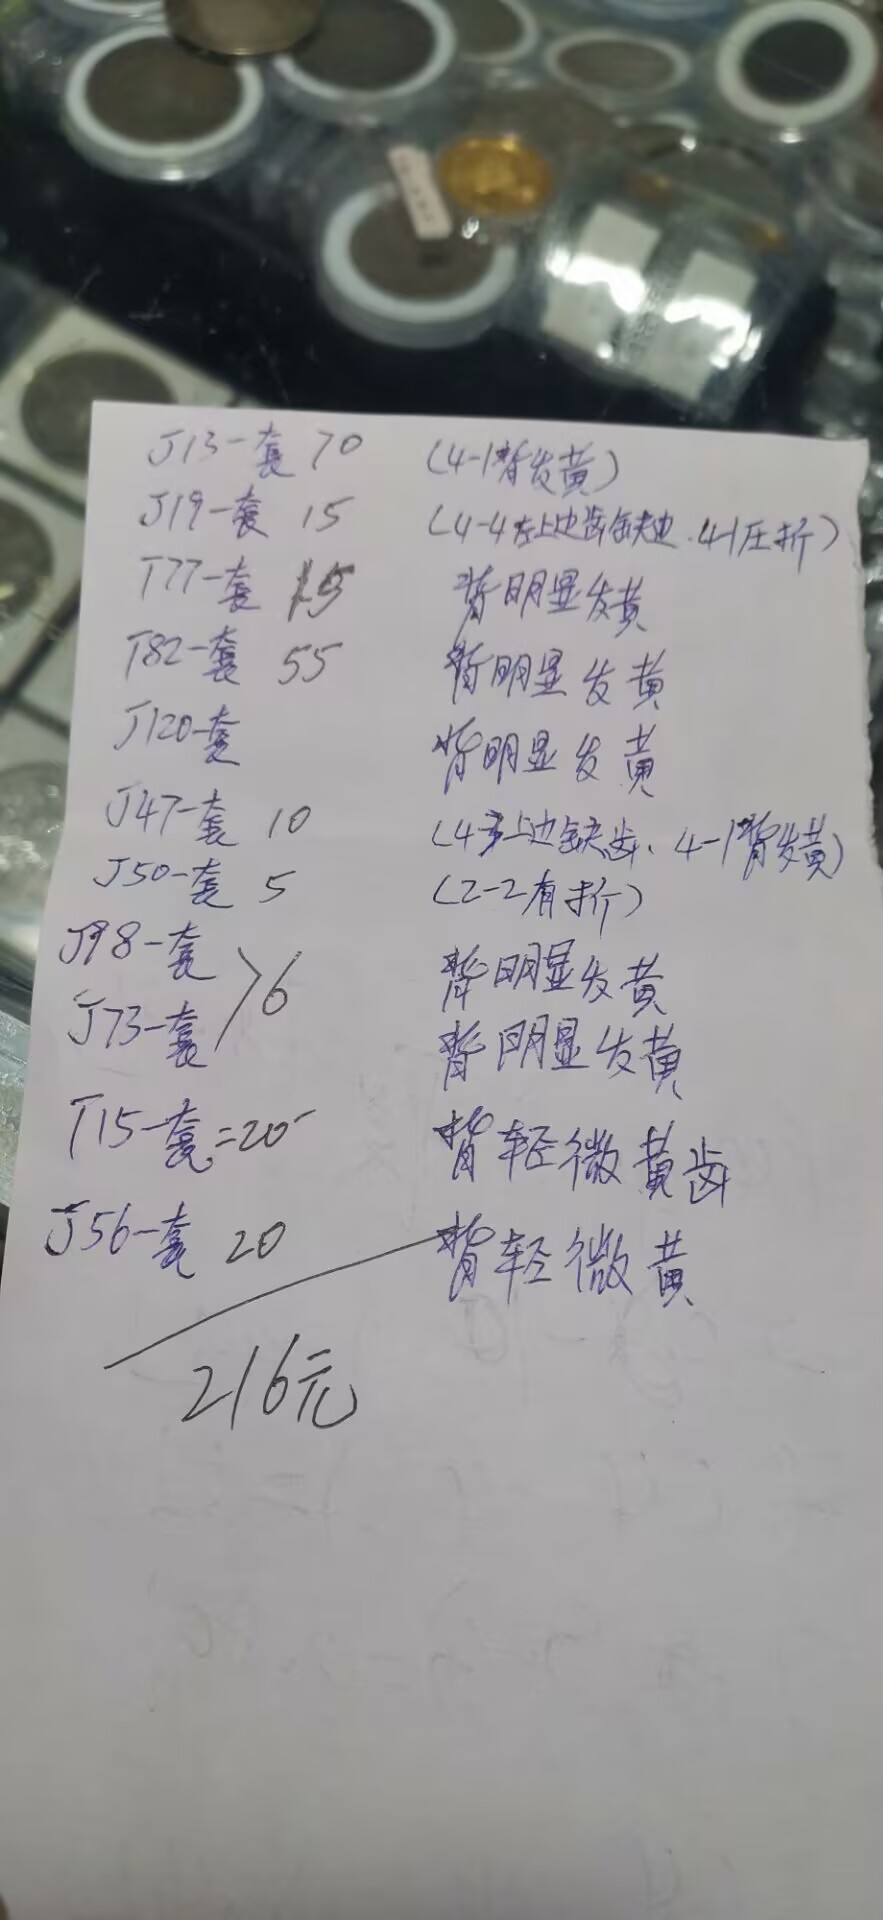 J13一套 70 (4-1背发黄)
J19一套 15 (4-4左上边齿缺边、4-1压折)
T77一套 15 背明显发黄
T82一套 55 背明显发黄
J120一套 背明显发黄
J47一套 10 (4 上边缺齿、4-1背发黄)
J50一套 5 (2-2有折)
J98一套 背明显发黄
>6
J73一套 背明显发黄
T15一套=20 背轻微黄齿
J56一套 20 背轻微黄
216元